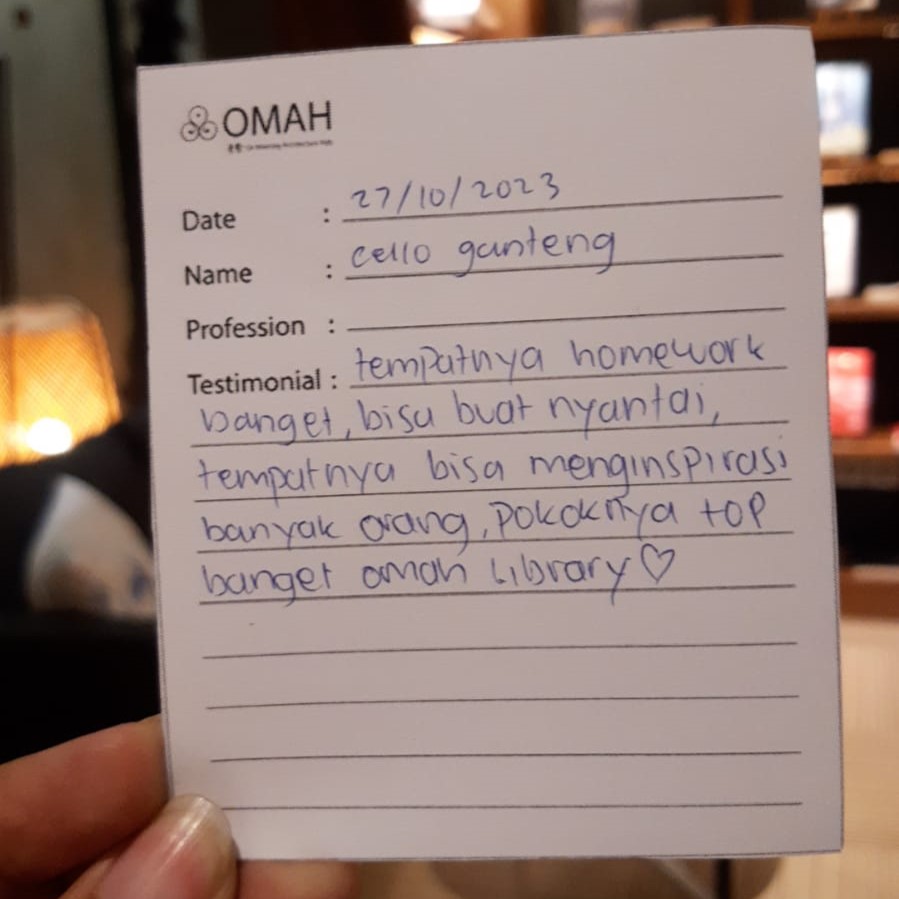 OMAH
Date : 27/10/2023
Name : cello ganteng
Profession :
Testimonial : tempatnya homework
banget, bisa buat nyantai,
tempatnya bisa menginspirasi
banyak orang, pokoknya top
banget omah Library♡